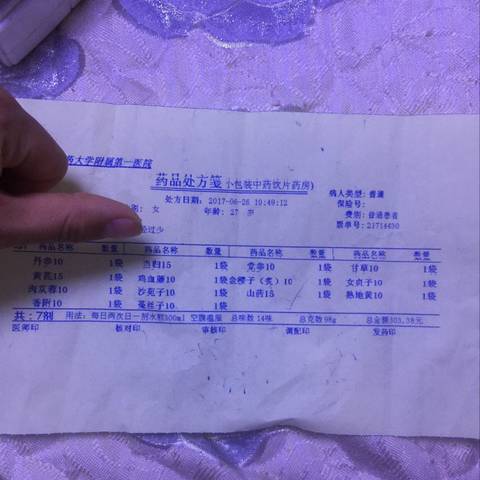 药大学附属第一医院
药品处方笺 小包装中药饮片药房)
处方日期: 2017-06-26 10:49:12
病人类型: 普通
别: 女 年龄: 27 岁
保险号:
费别: 普通患者
票单号: 21714630
经过少
药品名称 数量 药品名称 数量 药品名称 数量 药品名称 数量
丹参10 1袋 当归15 1袋 党参10 1袋 甘草10 1袋
黄芪15 1袋 鸡血藤10 1袋 金樱子(炙)10 1袋 女贞子10 1袋
肉苁蓉10 1袋 沙苑子10 1袋 山药15 1袋 熟地黄10 1袋
香附10 1袋 菟丝子10 1袋
共: 7剂 用法: 每日两次日一剂水煎300ml 空腹温服 总味数 14味 总克数98g 总金额303.38元
医师印 核对印 审核印 调配印 发药印